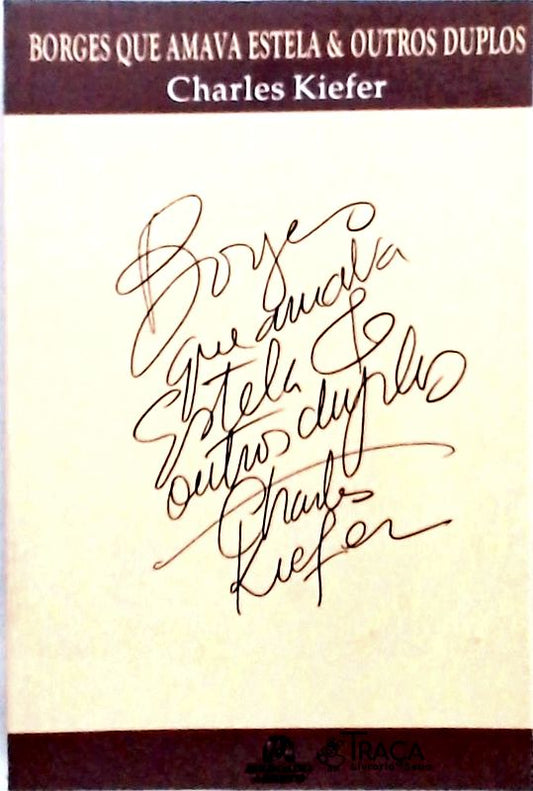 BORGES QUE AMAVA ESTELA & OUTROS DUPLOS
Charles Kiefer
Borges
que amava
Estela &
outros duplos
Charles
Kiefer
TRAÇA